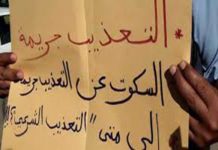 * التعذيب جريمة
السكوت عن التعذيب جريمة
إلى متى "التعذيب